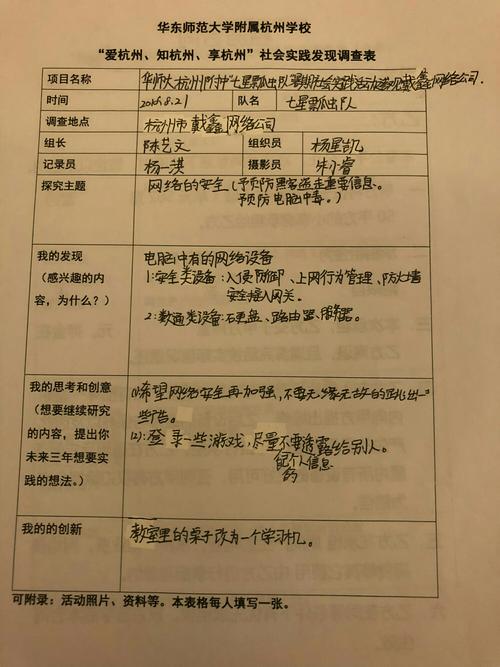 华东师范大学附属杭州学校
“爱杭州、知杭州、享杭州”社会实践发现调查表
项目名称 华师大杭州附中七星瓢虫队暑期社会实践活动走进戴鑫网络公司.
时间 2016.8.21 队名 七星瓢虫队
调查地点 杭州市戴鑫网络公司
组长 陈艺文 组织员 杨星凯
记录员 杨一洪 摄影员 朱小睿
探究主题 网络的安全(予预防黑客盗走重要信息。
予预防电脑中毒。)
我的发现
(感兴趣的内
容,为什么?)
电脑中有的网络设备
1:安全类设备:入侵防御、上网行为管理、防火墙
安全接入网关。
2:数通类设备:硬盘、路由器、服务器。
我的思考和创意
(想要继续研究
的内容,提出你
未来三年想要实
践的想法。)
(1)希望网络安全再加强,不要无缘无故的跳出一
些广告。
(2):登录一些游戏,尽量不要透露给别人。
自己个人信息
的
我的的创新 教室里的桌子改为一个学习机。
可附录:活动照片、资料等。本表格每人填写一张。